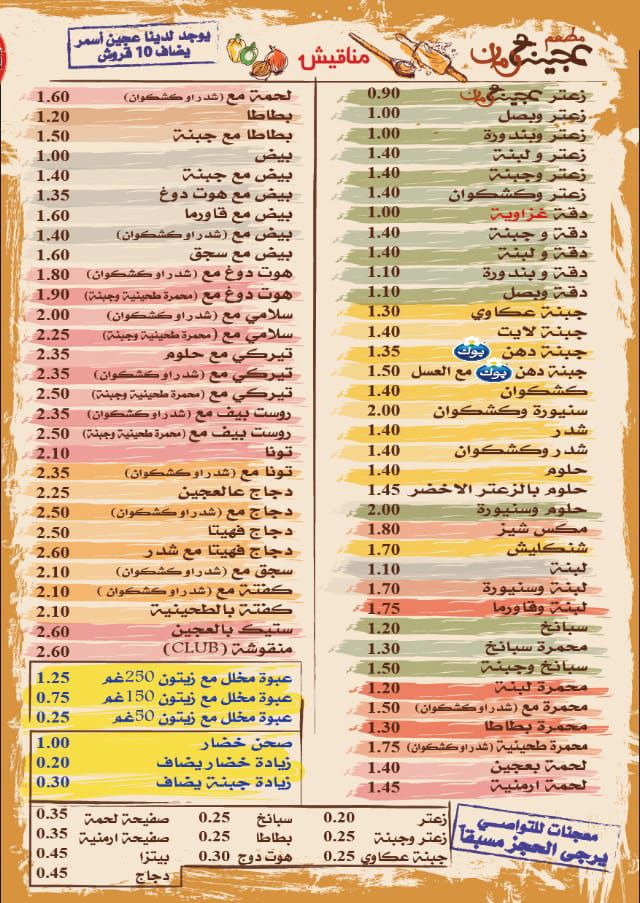 مطعم
عجينة خومان
مناقيش
يوجد لدينا عجين أسمر
يضاف 10 قروش
زعتر عجينة خومان 0.90
زعتر وبصل 1.00
زعتر وبندورة 1.00
زعتر و لبنة 1.40
زعتر وجبنة 1.40
زعتر وكشكوان 1.40
دقة غزاوية 1.00
دقة و جبنة 1.40
دقة و لبنة 1.40
دقة و بندورة 1.10
دقة وبصل 1.10
جبنة عكاوي 1.30
جبنة لايت 1.40
جبنة دهن بوك 1.35
جبنة دهن بوك مع العسل 1.50
كشكوان 1.40
سنيورة وكشكوان 2.00
شدر 1.40
شدر وكشكوان 1.40
حلوم 1.40
حلوم بالزعتر الاخضر 1.45
حلوم وسنيورة 2.00
مكس شيز 1.80
شنكليش 1.70
لبنة 1.10
لبنة وسنيورة 1.70
لبنة وقاورما 1.75
سبانخ 1.20
محمرة سبانخ 1.30
سبانخ وجبنة 1.50
محمرة لبنة 1.20
محمرة مع (شدر او كشكوان) 1.50
محمرة بطاطا 1.30
محمرة طحينية (شدر او كشكوان) 1.75
لحمة بعجين 1.40
لحمة ارمنية 1.45
لحمة مع (شدر او كشكوان) 1.60
بطاطا 1.20
بطاطا مع جبنة 1.50
بيض 1.00
بيض مع جبنة 1.40
بيض مع هوت دوغ 1.35
بيض مع قاورما 1.60
بيض مع (شدر او كشكوان) 1.40
بيض مع سجق 1.60
هوت دوغ مع (شدر او كشكوان) 1.80
هوت دوغ مع (محمرة طحينية وجبنة) 1.90
سلامي مع (شدر او كشكوان) 2.00
سلامي مع (محمرة طحينية وجبنة) 2.25
تيركي مع حلوم 2.35
تيركي مع (شدر او كشكوان) 2.35
تيركي مع (محمرة طحينية وجبنة) 2.50
روست بيف مع (شدر او كشكوان) 2.35
روست بيف مع (محمرة طحينية وجبنة) 2.50
تونا 2.10
تونا مع (شدر او كشكوان) 2.35
دجاج عالعجين 2.25
دجاج مع (شدر او كشكوان) 2.50
دجاج فهيتا 2.50
دجاج فهيتا مع شدر 2.60
سجق مع (شدر او كشكوان) 2.10
كفتة مع (شدر او كشكوان ) 2.10
كفتة بالطحينية 2.10
ستيك بالعجين 2.60
منقوشة (CLUB) 2.60
عبوة مخلل مع زيتون 250غم 1.25
عبوة مخلل مع زيتون 150غم 0.75
عبوة مخلل مع زيتون 50غم 0.25
صحن خضار 1.00
زيادة خضار يضاف 0.20
زيادة جبنة يضاف 0.30
معجنات للتواصي
يرجى الحجز مسبقاً
زعتر 0.20 سبانخ 0.25 صفيحة لحمة 0.35
زعتر وجبنة 0.25 بطاطا 0.25 صفيحة ارمنية 0.35
جبنة عكاوي 0.25 هوت دوج 0.30 بيتزا 0.45
دجاج 0.45